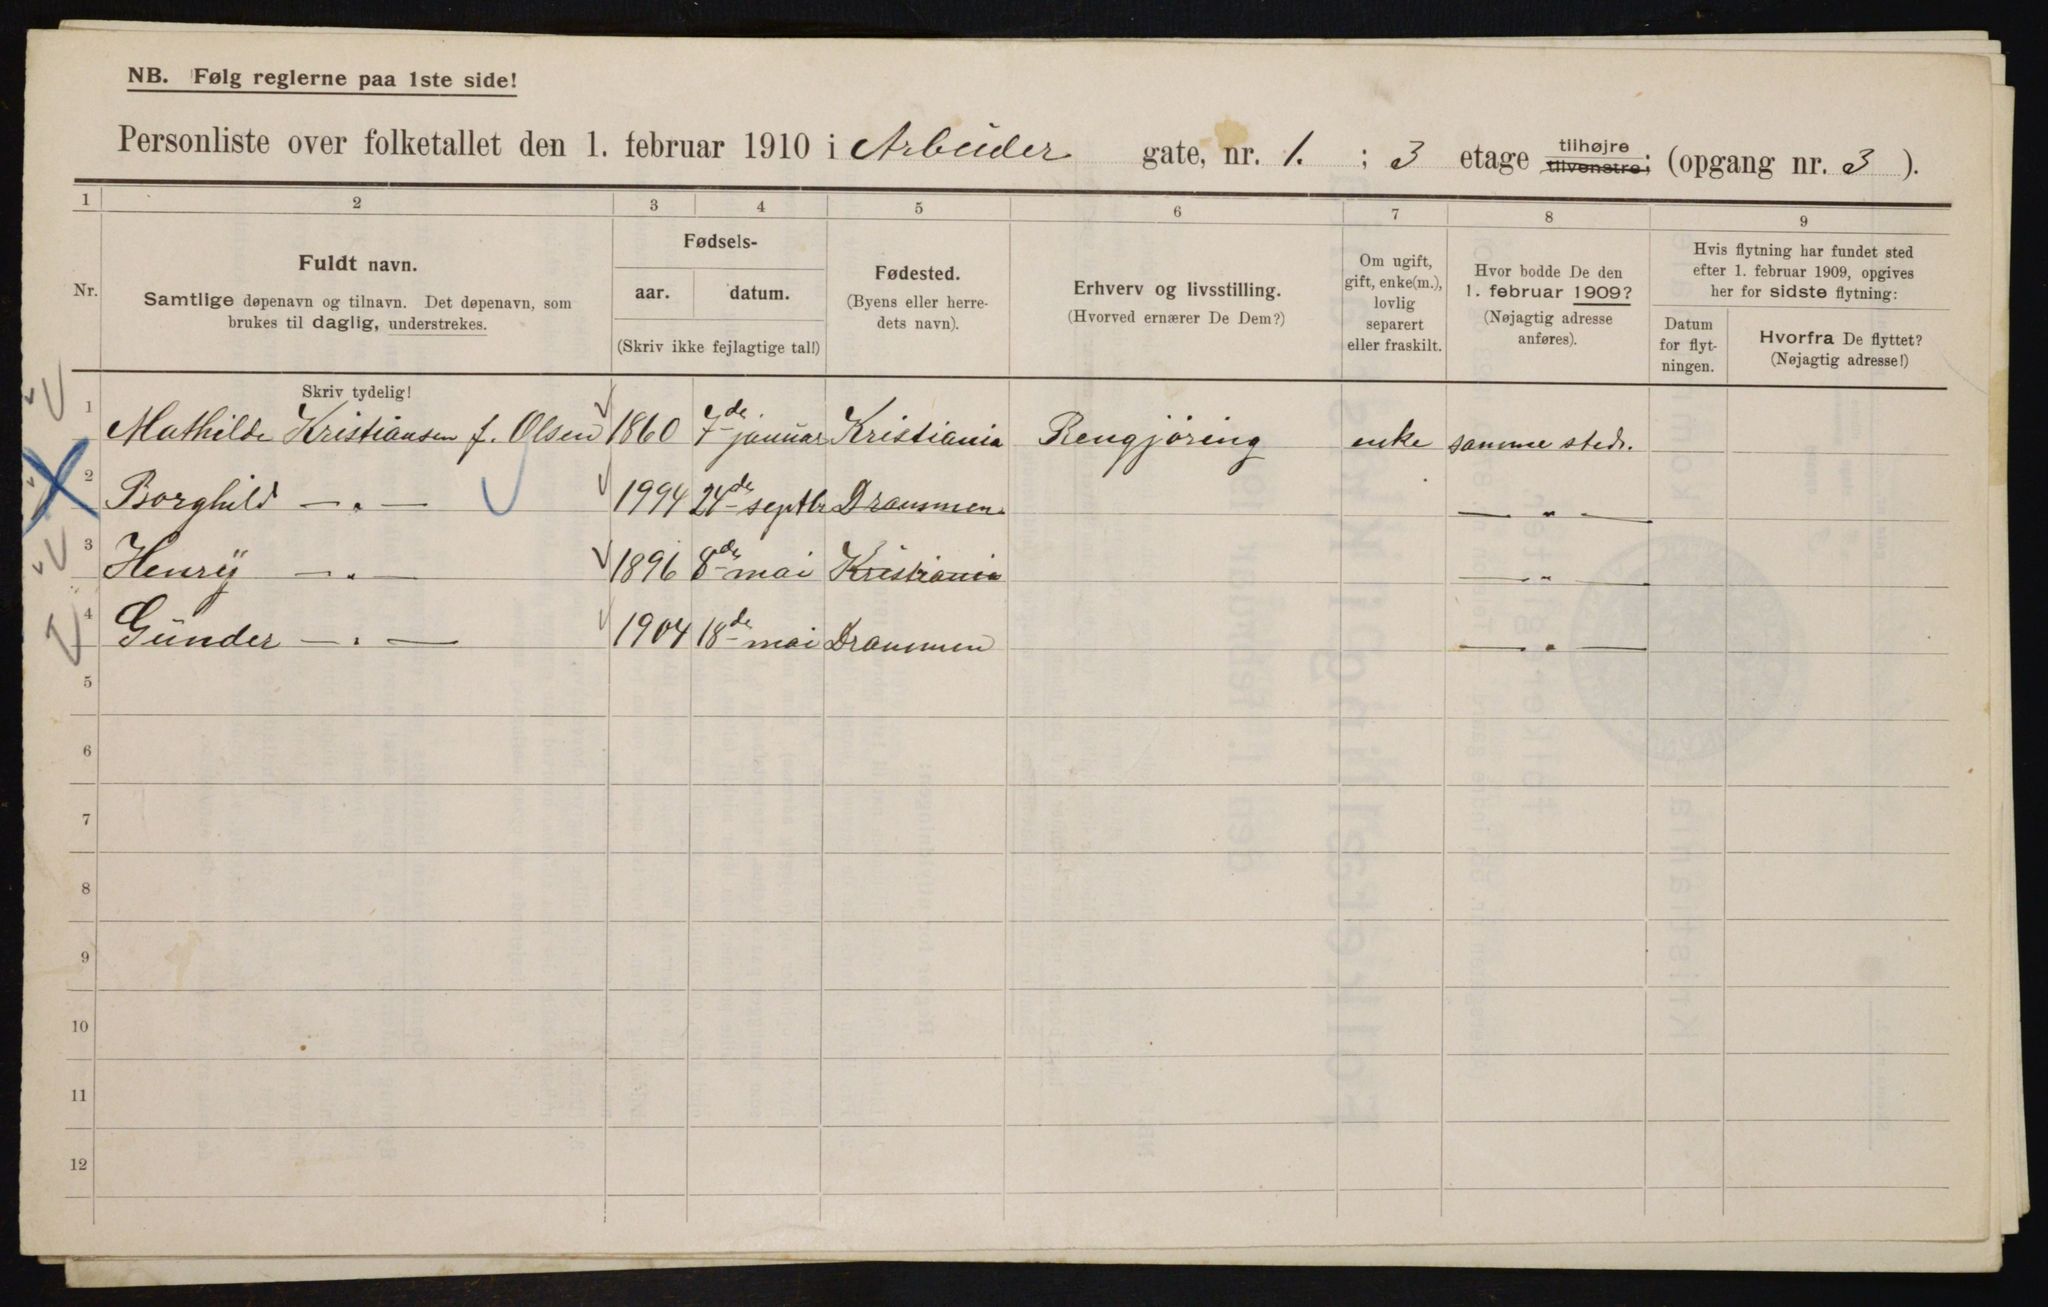 NB. Følg reglerne paa 1ste side!
Personliste over folketallet den 1. februar 1910 i Arbeider gate, nr. 1. ; 3 etage tilhøjre tilvenstre; (opgang nr. 3 ).
1 2 3 4 5 6 7 8 9
Nr.
Fuldt navn.
Samtlige døpenavn og tilnavn. Det døpenavn, som
brukes til daglig, understrekes.
Fødsels-
aar. datum.
(Skriv ikke fejlagtige tal!)
Fødested.
(Byens eller herre-
dets navn).
Erhverv og livsstilling.
(Hvorved ernærer De Dem?)
Om ugift,
gift, enke(m.),
lovlig
separert
eller fraskilt.
Hvor bodde De den
1. februar 1909?
(Nøjagtig adresse
anføres).
Hvis flytning har fundet sted
efter 1. februar 1909, opgives
her for sidste flytning:
Datum
for flyt-
ningen.
Hvorfra De flyttet?
(Nøjagtig adresse!)
Skriv tydelig!
1 Mathilde Kristiansen f. Olsen 1860 7de januar Kristiania Rengjøring enke samme sted.
2 Borghild — „ — 1994 24de septbr Drammen — „ —
3 Henry — „ — 1896 8de mai Kristiania — „ —
4 Gunder — „ — 1904 18de mai Drammen — „ —
5
6
7
8
9
10
11
12